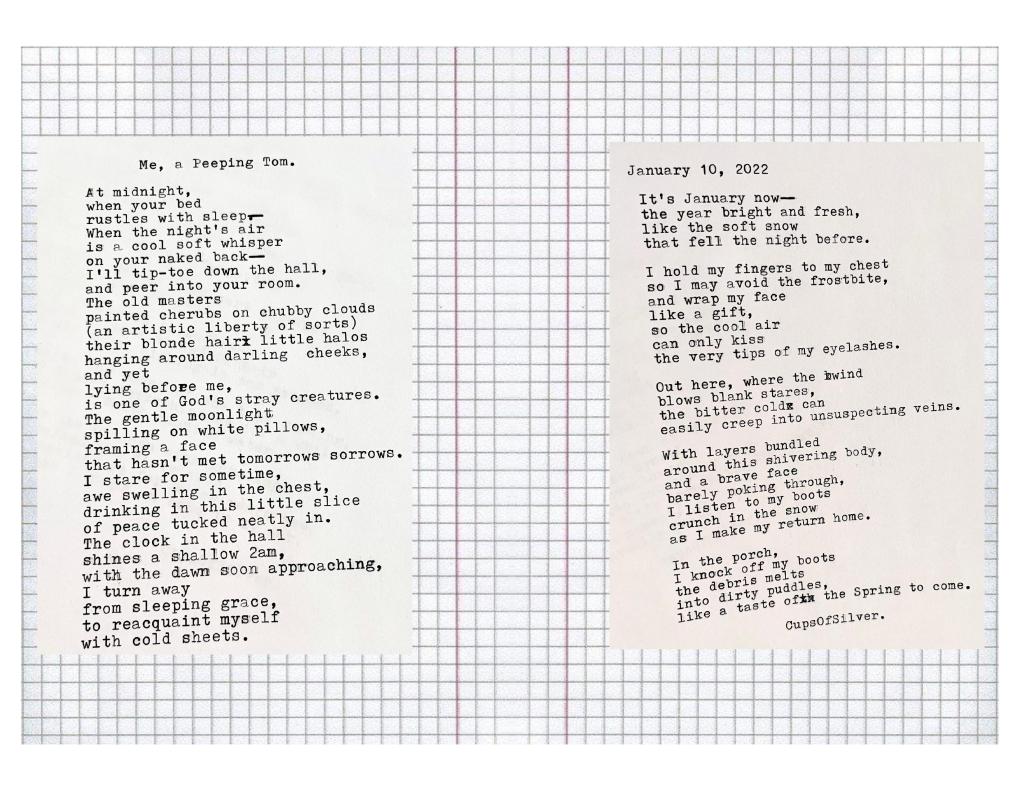 Me, a Peeping Tom.
At midnight,
when your bed
rustles with sleep—
When the night's air
is a cool soft whisper
on your naked back—
I'll tip-toe down the hall,
and peer into your room.
The old masters
painted cherubs on chubby clouds
(an artistic liberty of sorts)
their blonde hair little halos
hanging around darling cheeks,
and yet
lying before me,
is one of God's stray creatures.
The gentle moonlight
spilling on white pillows,
framing a face
that hasn't met tomorrows sorrows.
I stare for sometime,
awe swelling in the chest,
drinking in this little slice
of peace tucked neatly in.
The clock in the hall
shines a shallow 2am,
with the dawn soon approaching,
I turn away
from sleeping grace,
to reacquaint myself
with cold sheets.
January 10, 2022
It's January now—
the year bright and fresh,
like the soft snow
that fell the night before.
I hold my fingers to my chest
so I may avoid the frostbite,
and wrap my face
like a gift,
so the cool air
can only kiss
the very tips of my eyelashes.
Out here, where the wind
blows blank stares,
the bitter cold can
easily creep into unsuspecting veins.
With layers bundled
around this shivering body,
and a brave face
barely poking through,
I listen to my boots
crunch in the snow
as I make my return home.
In the porch,
I knock off my boots
the debris melts
into dirty puddles,
like a taste of the Spring to come.
CupsOfSilver.